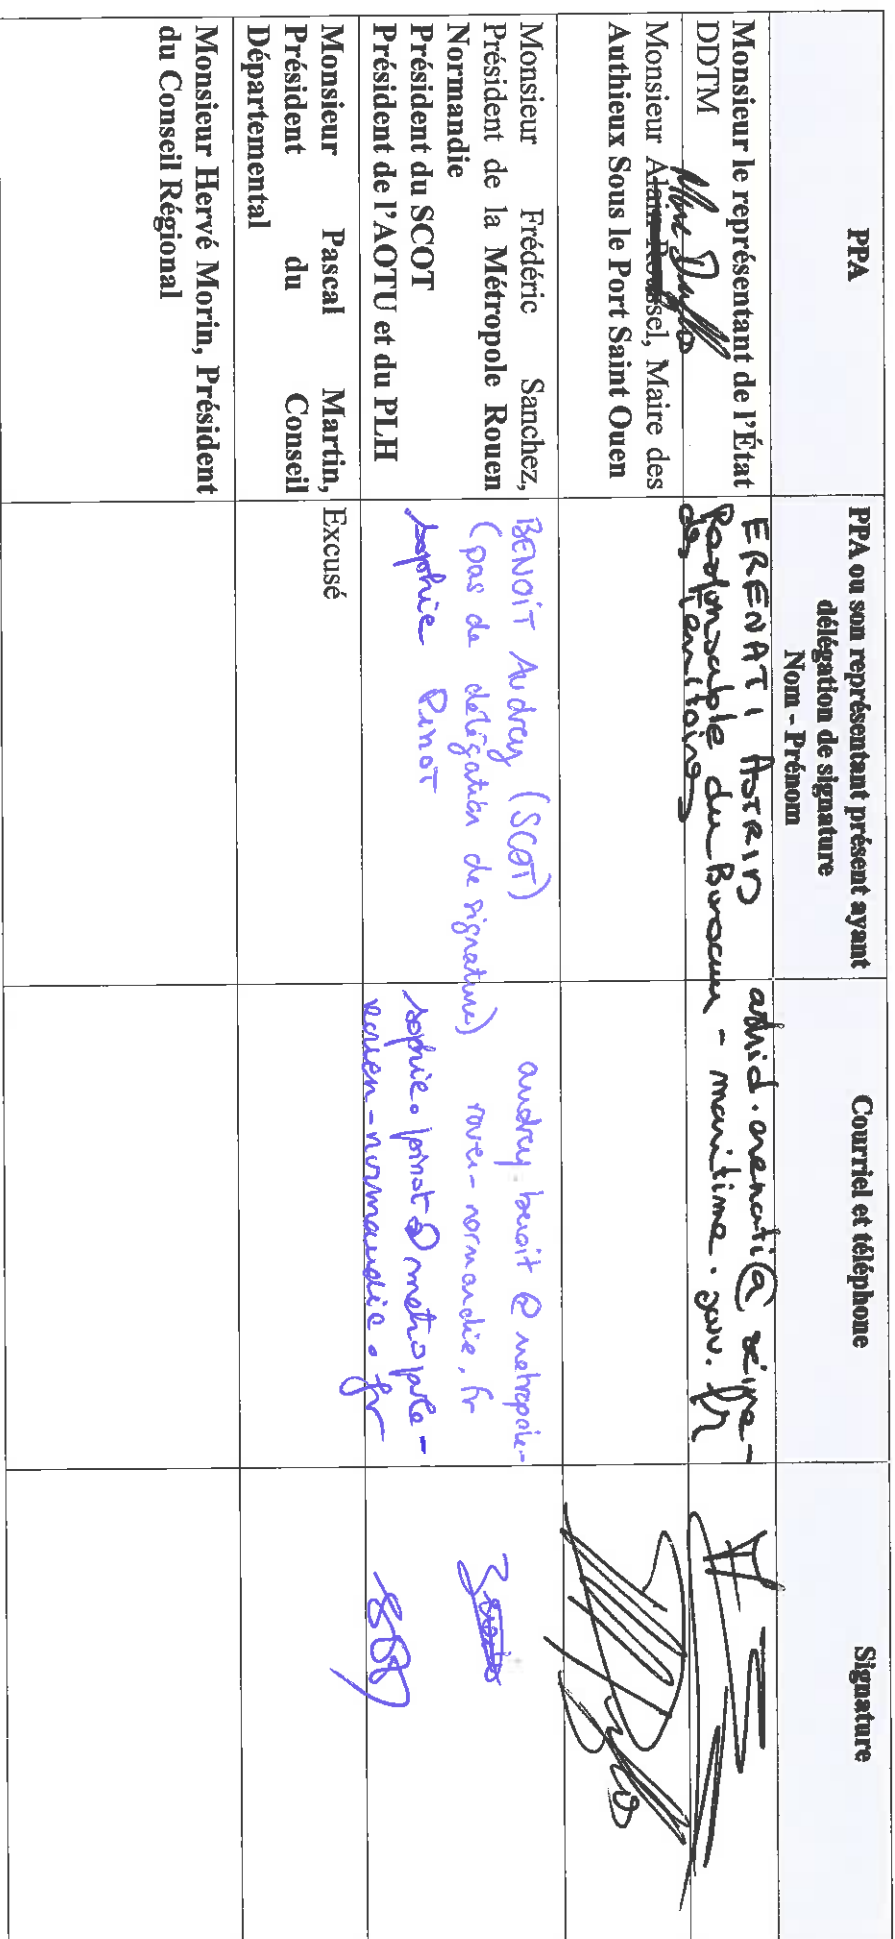 PPA
PPA ou son représentant présent ayant
délégation de signature
Nom - Prénom
Courriel et téléphone
Signature
Monsieur le représentant de l'État
DDTM
ERENATI ASTRID
Responsable du Bureau
des Territoires
astrid.erenati@seine-
maritime.gouv.fr
Monsieur Alain Roussel, Maire des
Authieux Sous le Port Saint Ouen
Monsieur Frédéric Sanchez,
Président de la Métropole Rouen
Normandie
Président du SCOT
Président de l'AOTU et du PLH
BENOIT Audrey (SCOT)
(pas de délégation de signature)
Sophie Pinot
audrey.benoit@metropole-
rouen-normandie.fr
sophie.pinot@metropole-
rouen-normandie.fr
Monsieur Pascal Martin,
Président du Conseil
Départemental
Excusé
Monsieur Hervé Morin, Président
du Conseil Régional